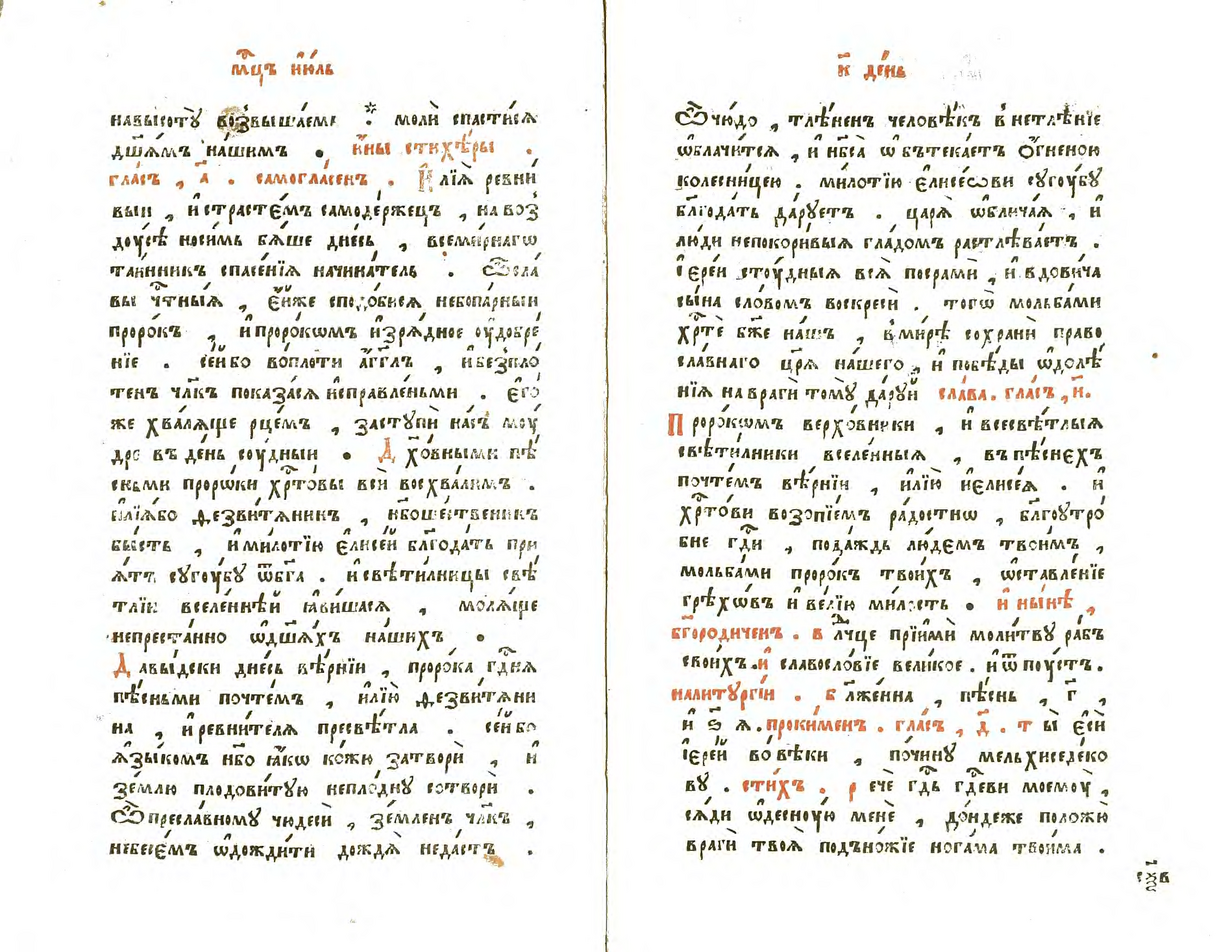 мⷭ҇цъ і҆ю́ль
навысотꙋ̀ возвыша́еми ⁘ молѝ спасти́сѧ
дш҃а́мъ на́шимъ . и҆́ны стихѣ́ры .
гла́съ , а҃ . самогла́сенъ . И҆лїѧ̀ ревни́
выи , и҆страсте́мъ самоде́ржецъ , навоз̾
дꙋ́сѣ носи́мь бѧ́ше дне́сь , всеми́рнагѡ
та́инникъ спасе́нїѧ начина́тель . Ѽсла́
вы чⷭ҇тны́ѧ , е҆ѧ́же сподо́бисѧ небопа́рныи
проро́къ , и҆проро́кѡмъ и҆зрѧ́дное ᲂу҆добре́
нїе . се́йбо воплотѝ а҆́гг҃лъ , и҆безпло́
тенъ чл҃къ показа́сѧ и҆справле́ньми . Е҆го́
же хва́лѧще рце́мъ , застꙋпѝ на́съ мꙋ́
дре въде́нь сꙋ́дныи . Дх҃о́вными пѣ́
сньми проро́ки хрⷭ҇то́вы всѝ восхва́лимъ .
и҆лїѧ́бо ѳезвитѧ́никъ , нб҃оше́ственикъ
бы́сть , и҆ми́лотїю є҆лисе́й блгⷣа́ть прї
ѧ́тъ сꙋгꙋ́бꙋ ѿбг҃а . и҆свѣти́лницы свѣ́
тлїи вселе́ннѣй ꙗ҆ви́шасѧ , молѧ́ще
непреста́нно ѡ҆дш҃а́хъ на́шихъ .
Дави́дски дне́сь вѣ́рнїи , проро́ка гдⷭ҇нѧ
пѣ́сньми почте́мъ , и҆лїю̀ ѳезвитѧ́ни
на , и҆ревни́телѧ пресвѣ́тла . се́йбо
ѧ҆зы́комъ нб҃о ꙗ҆́кѡ ко́жю затворѝ , и҆
зе́млю плодови́тꙋю непло́днꙋ сотворѝ .
Ѽпресла́вномꙋ чюдесѝ , зе́мленъ чл҃къ ,
небесе́мъ ѡ҆дожди́ти дождѧ̀ неда́стъ .
к҃ де́нь
Ѽчю́до , тлѣ́ненъ человѣ́къ внетлѣ́нїе
ѡ҆блачи́тсѧ , и҆ нб҃са̀ ѡ҆бътека́етъ ѻ҆́гненою
колесни́цею . ми́лотїю є҆лисе́ѡви сꙋгꙋ́бꙋ
блгⷣа́ть да́рꙋетъ . царѧ̀ ѡ҆блича́ѧ , и҆
лю́ди непокори́выѧ гла́домъ растлѣва́етъ .
і҆ере́и стꙋ́дныѧ всѧ̀ посрамѝ , и҆ вдови́ча
сы́на сло́вомъ воскресѝ . тогѡ̀ мольба́ми
хрⷭ҇тѐ бж҃е на́шъ , вми́рѣ сохранѝ право
сла́внаго цр҃ѧ̀ на́шего , и҆ побѣ́ды ѡ҆долѣ́
нїѧ навраги̑ томꙋ̀ да́рꙋй сла́ва . гла́съ , и҃ .
Проро́кѡмъ верхо́вники , и҆ всесвѣ́тлыѧ
свѣти́лники вселе́нныѧ , въпѣ́снехъ
почте́мъ вѣ́рнїи , и҆лїю̀ и҆є҆лисе́ѧ . и҆
хрⷭ҇то́ви возопїе́мъ ра́достнѡ , бл҃гоꙋтро́
бне гдⷭ҇и , пода́ждь лю́демъ твои́мъ ,
мольба́ми проро́къ твои́хъ , ѡ҆ставле́нїе
грѣхо́въ и҆ ве́лїю ми́лость . и҆ ны́нѣ ,
бг҃оро́диченъ . влⷣчце прїимѝ моли́твꙋ ра́бъ
свои́хъ . и҆ славосло́вїе вели́кое . и҆ ѿпꙋ́стъ .
налитꙋргі́и . бл҃же́нна , пѣ́снь , г҃ ,
и҆ ѕ҃ ѧ . проки́менъ . гла́съ , д҃ . ты̀ є҆сѝ
і҆ере́й вовѣ́ки , почи́нꙋ мельхиседе́ко
вꙋ . сти́хъ . речѐ гдⷭ҇ь гдⷭ҇еви моемꙋ̀ ,
сѧ́ди ѡ҆деснꙋ́ю менѐ , до́ндеже положꙋ̀
врагѝ твоѧ̀ подъно́жїе нога́ма твои́ма .